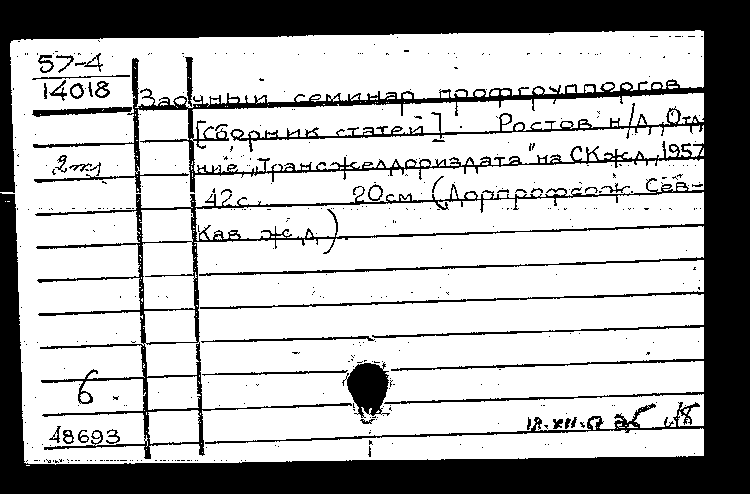 57-4
14018
Заочный семинар профгруппоргов
[Сборник статей]. Ростов н/Д, Отд-
ние „Трансжелдориздата" на СКжд, 1957
42с. 20см. (Дорпрофсож Сев-
Кав. ж.д.).
6
48693
18.XII.57